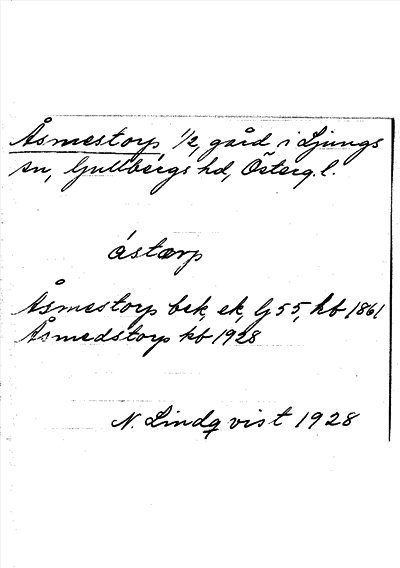 Åsmestorp 1/2, gård i Ljungs
sn, Gullbergs hd, Österg. l.
åstærp
Åsmestorp bek, ek, G 55, hb 1861
Åsmedstorp kb 1928
N. Lindqvist 1928